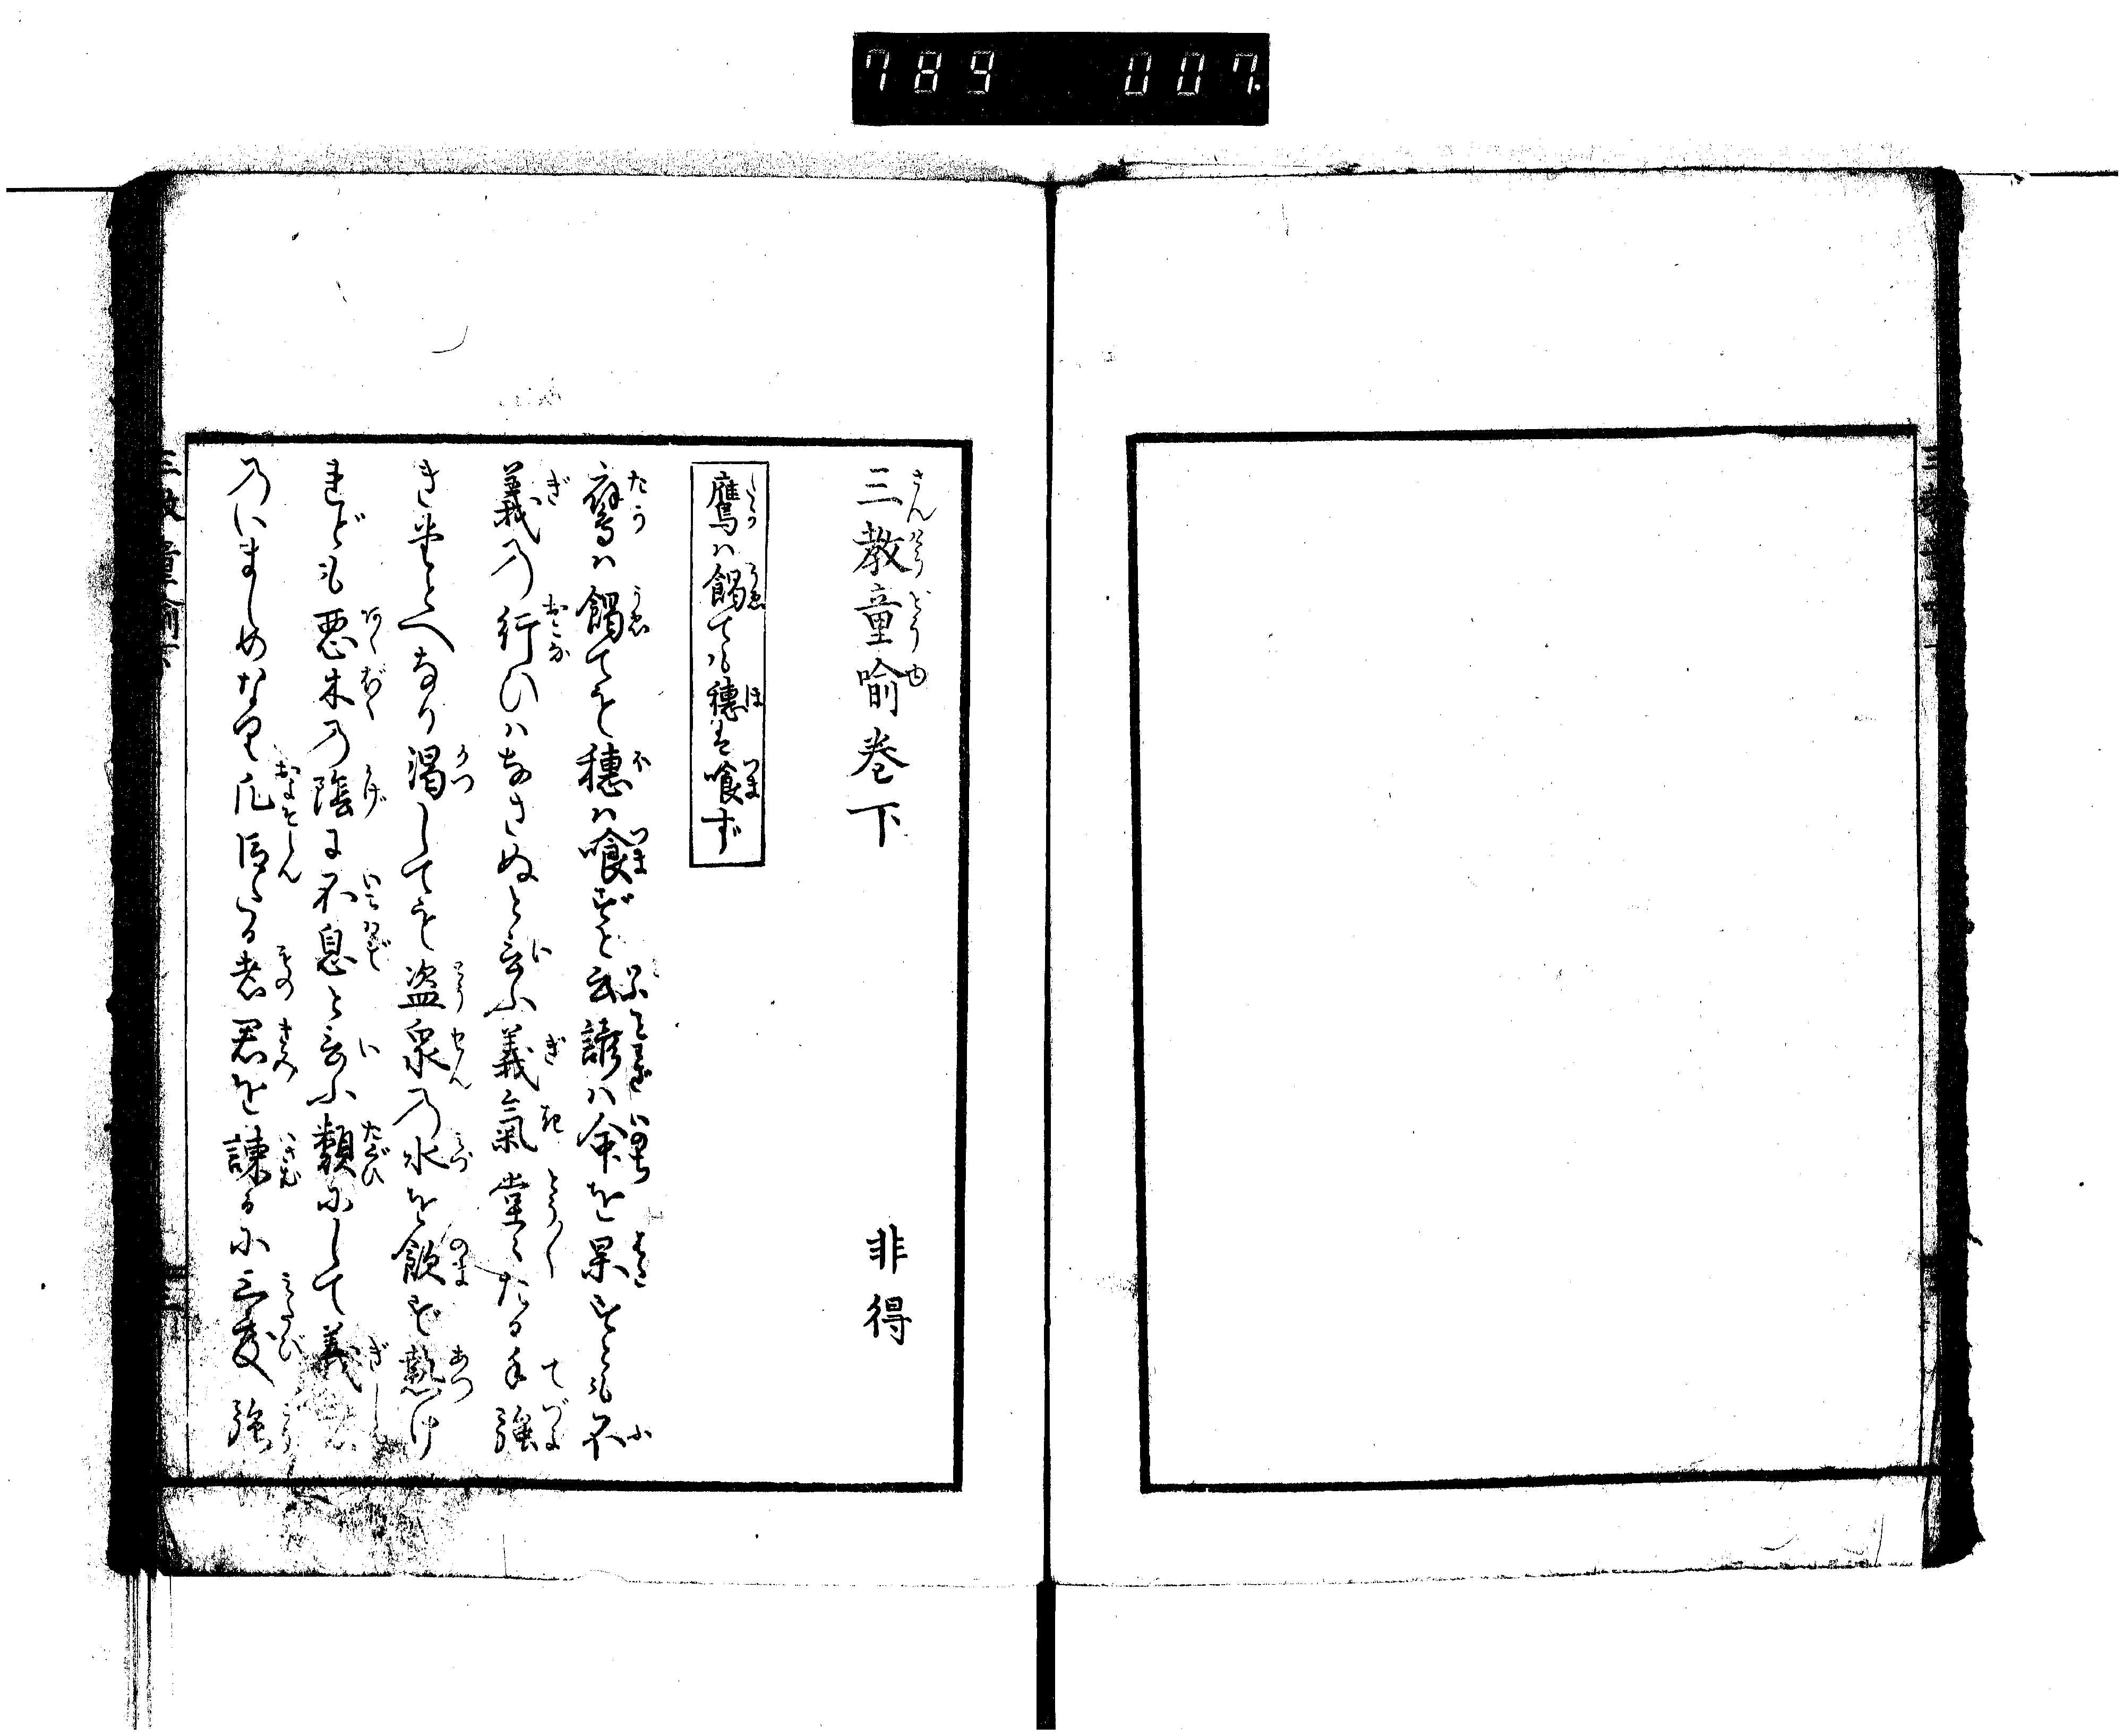 789 007
三教童喩巻下 非得
鷹ハ餲ても穂は喰ず
鷹ハ餲ても穂ハ喰ずと云諺ハ命を果すとも不
義乃行ひハなさぬと云ふ義氣堂々たる手強
きたとへなり渇しても盗泉乃水を飲ず熱け
れども悪木乃陰に不息と云ふ類にして義
乃いましめなり凡臣たる者君を諫るに三度強